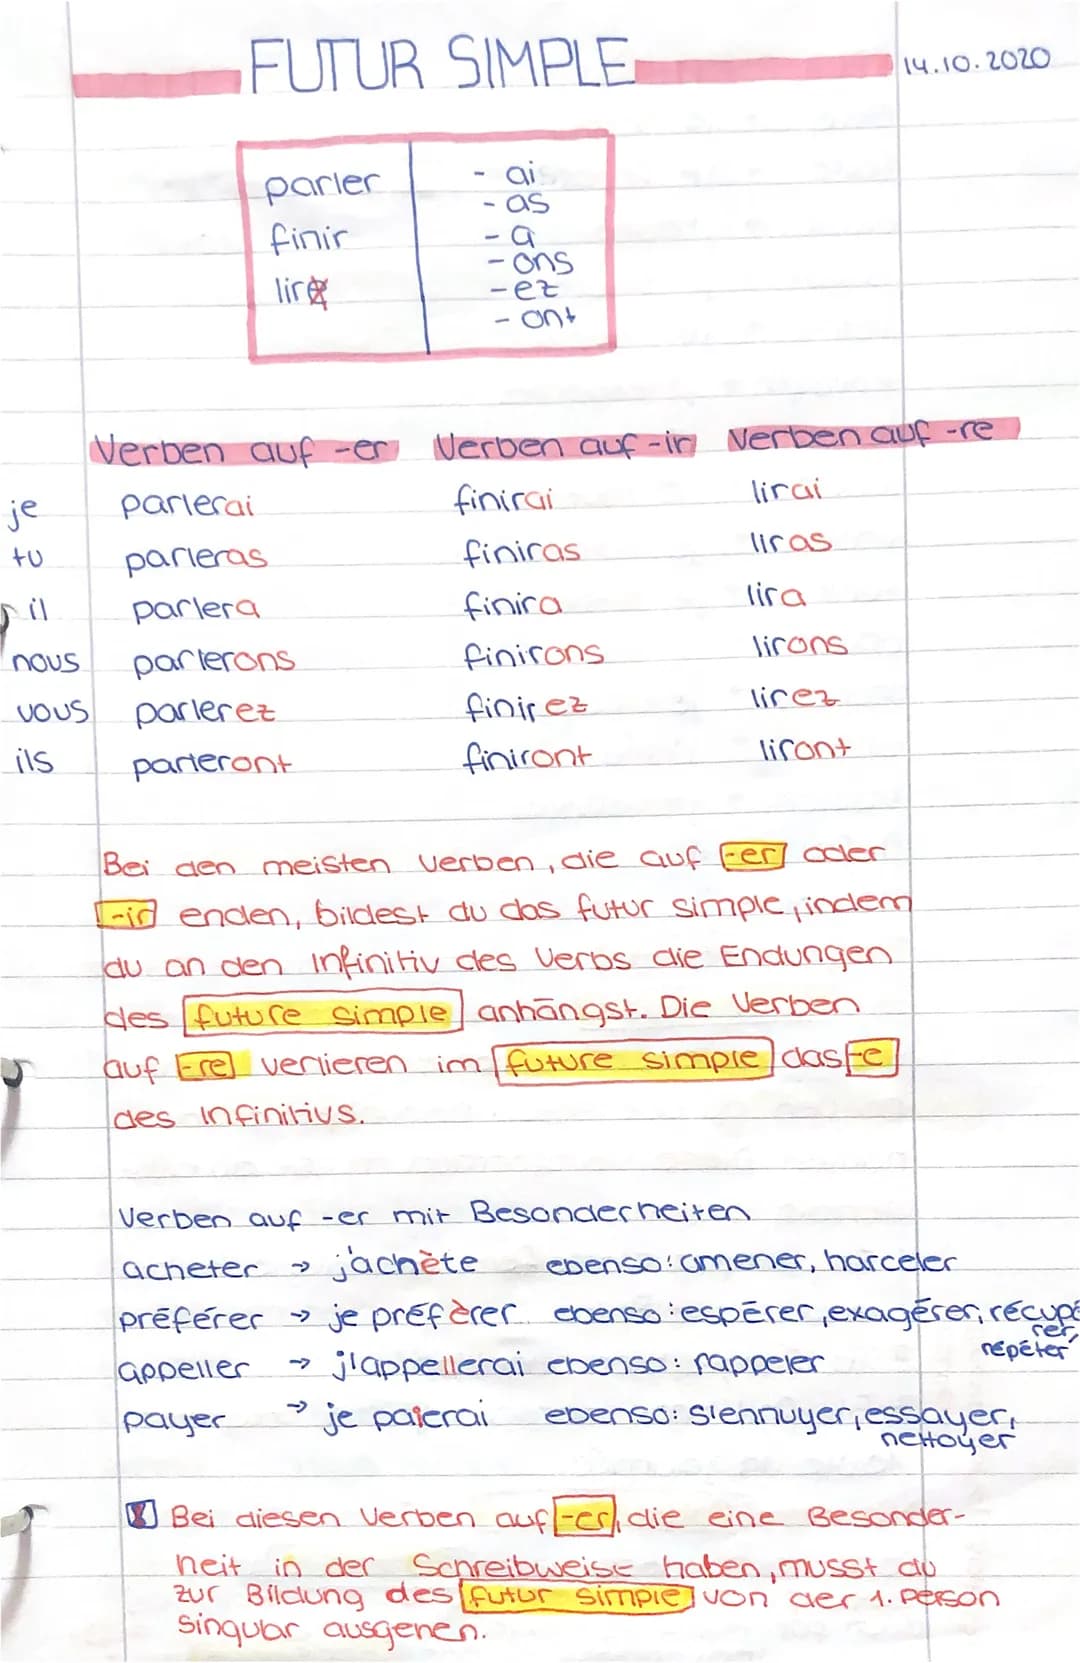 FUTUR SIMPLE 14.10.2020
parler - ai
- as
finir - a
- ons
lire - ez
- ont
Verben auf -er Verben auf -ir Verben auf -re
je parlerai finirai lirai
tu parleras finiras liras
il parlera finira lira
nous parlerons finirons lirons
vous parlerez finirez lirez
ils parleront finiront liront
Bei den meisten Verben, die auf -er oder
-ir enden, bildest du das futur simple, indem
du an den Infinitiv des Verbs die Endungen
des future simple anhängst. Die Verben
auf -re verlieren im future simple das -e
des Infinitivs.
Verben auf -er mit Besonderheiten
acheter → j'achète ebenso: amener, harceler
préférer → je préfèrer ebenso: espérer, exagérer, récupé
rer,
répéter
appeller → j'appellerai ebenso: rappeler
payer → je paierai ebenso: s'ennuyer, essayer,
nettoyer
Bei diesen Verben auf -er, die eine Besonder-
heit in der Schreibweise haben, musst du
zur Bildung des futur simple von der 1. Person
Singular ausgehen.